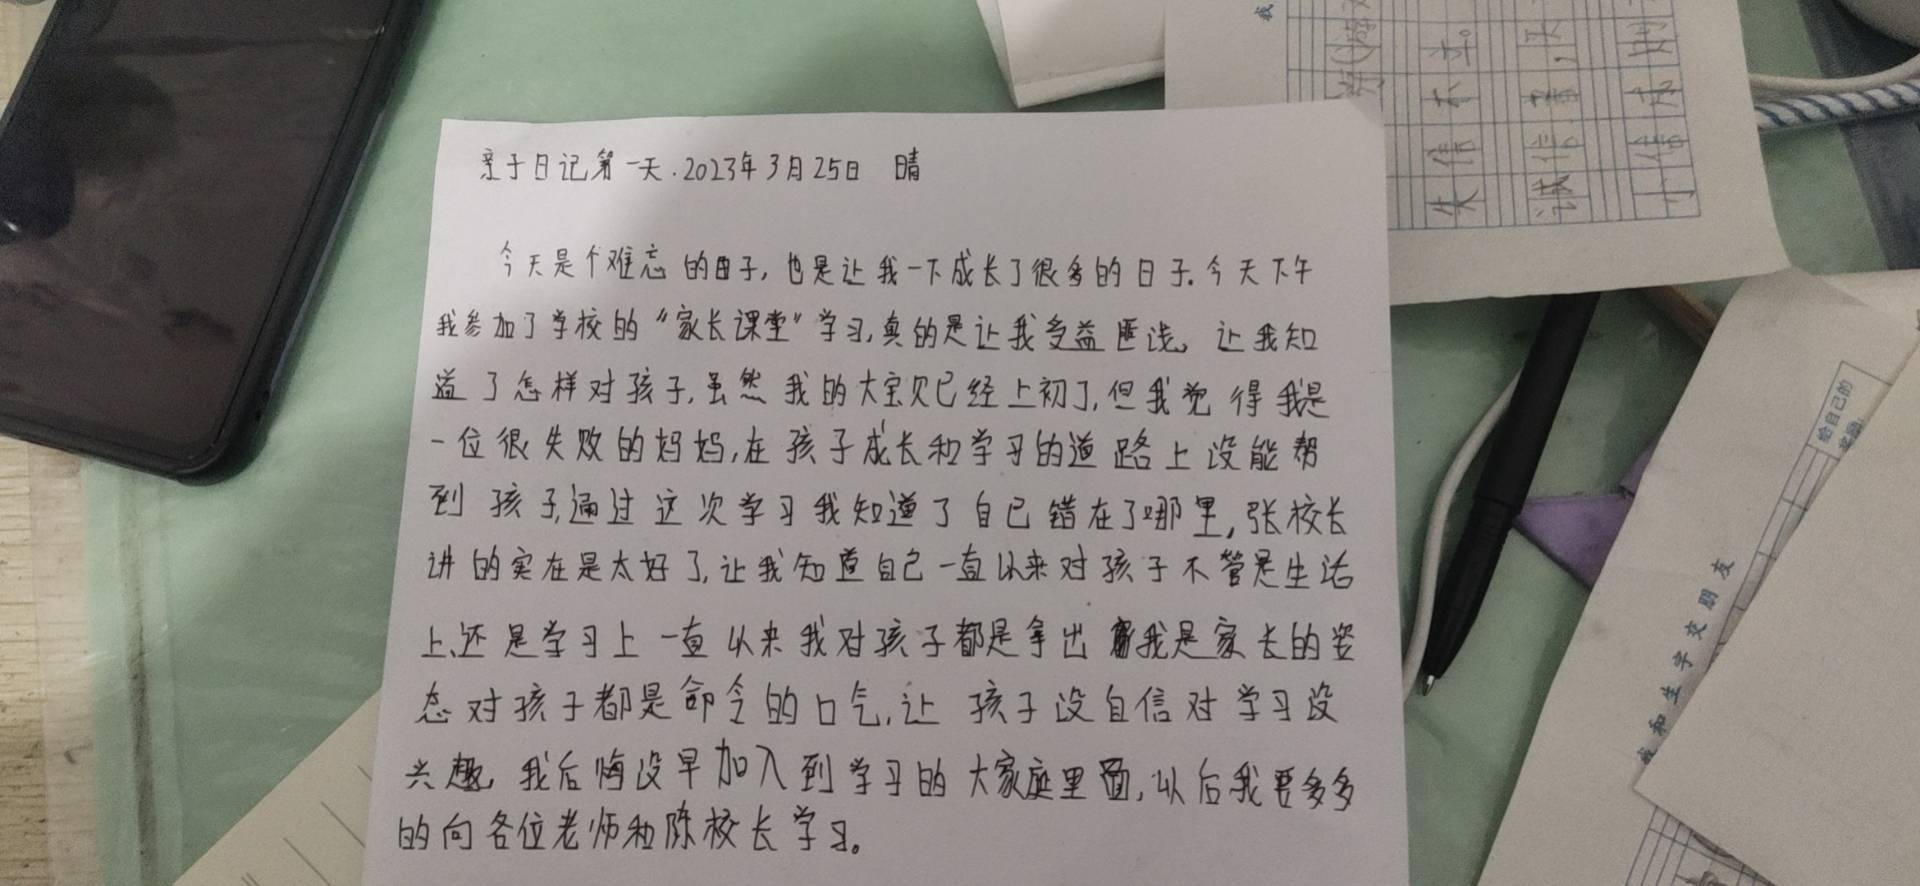 亲子日记第一天.2023年3月25日 晴
今天是个难忘的日子,也是让我一下成长了很多的日子.今天下午
我参加了学校的“家长课堂”学习,真的是让我受益匪浅。让我知
道了怎样对孩子,虽然我的大宝贝已经上初了,但我觉得我是
一位很失败的妈妈,在孩子成长和学习的道路上没能帮
到孩子,通过这次学习我知道了自己错在了哪里,张校长
讲的实在是太好了,让我知道自己一直以来对孩子不管是生活
上、还是学习上一直以来我对孩子都是拿出我是家长的姿
态对孩子都是命令的口气,让孩子没自信对学习没
兴趣,我后悔没早加入到学习的大家庭里面,以后我要多多
的向各位老师和陈校长学习。
失信不立。
诚信
小信成则
给自己的
我和生字交朋友